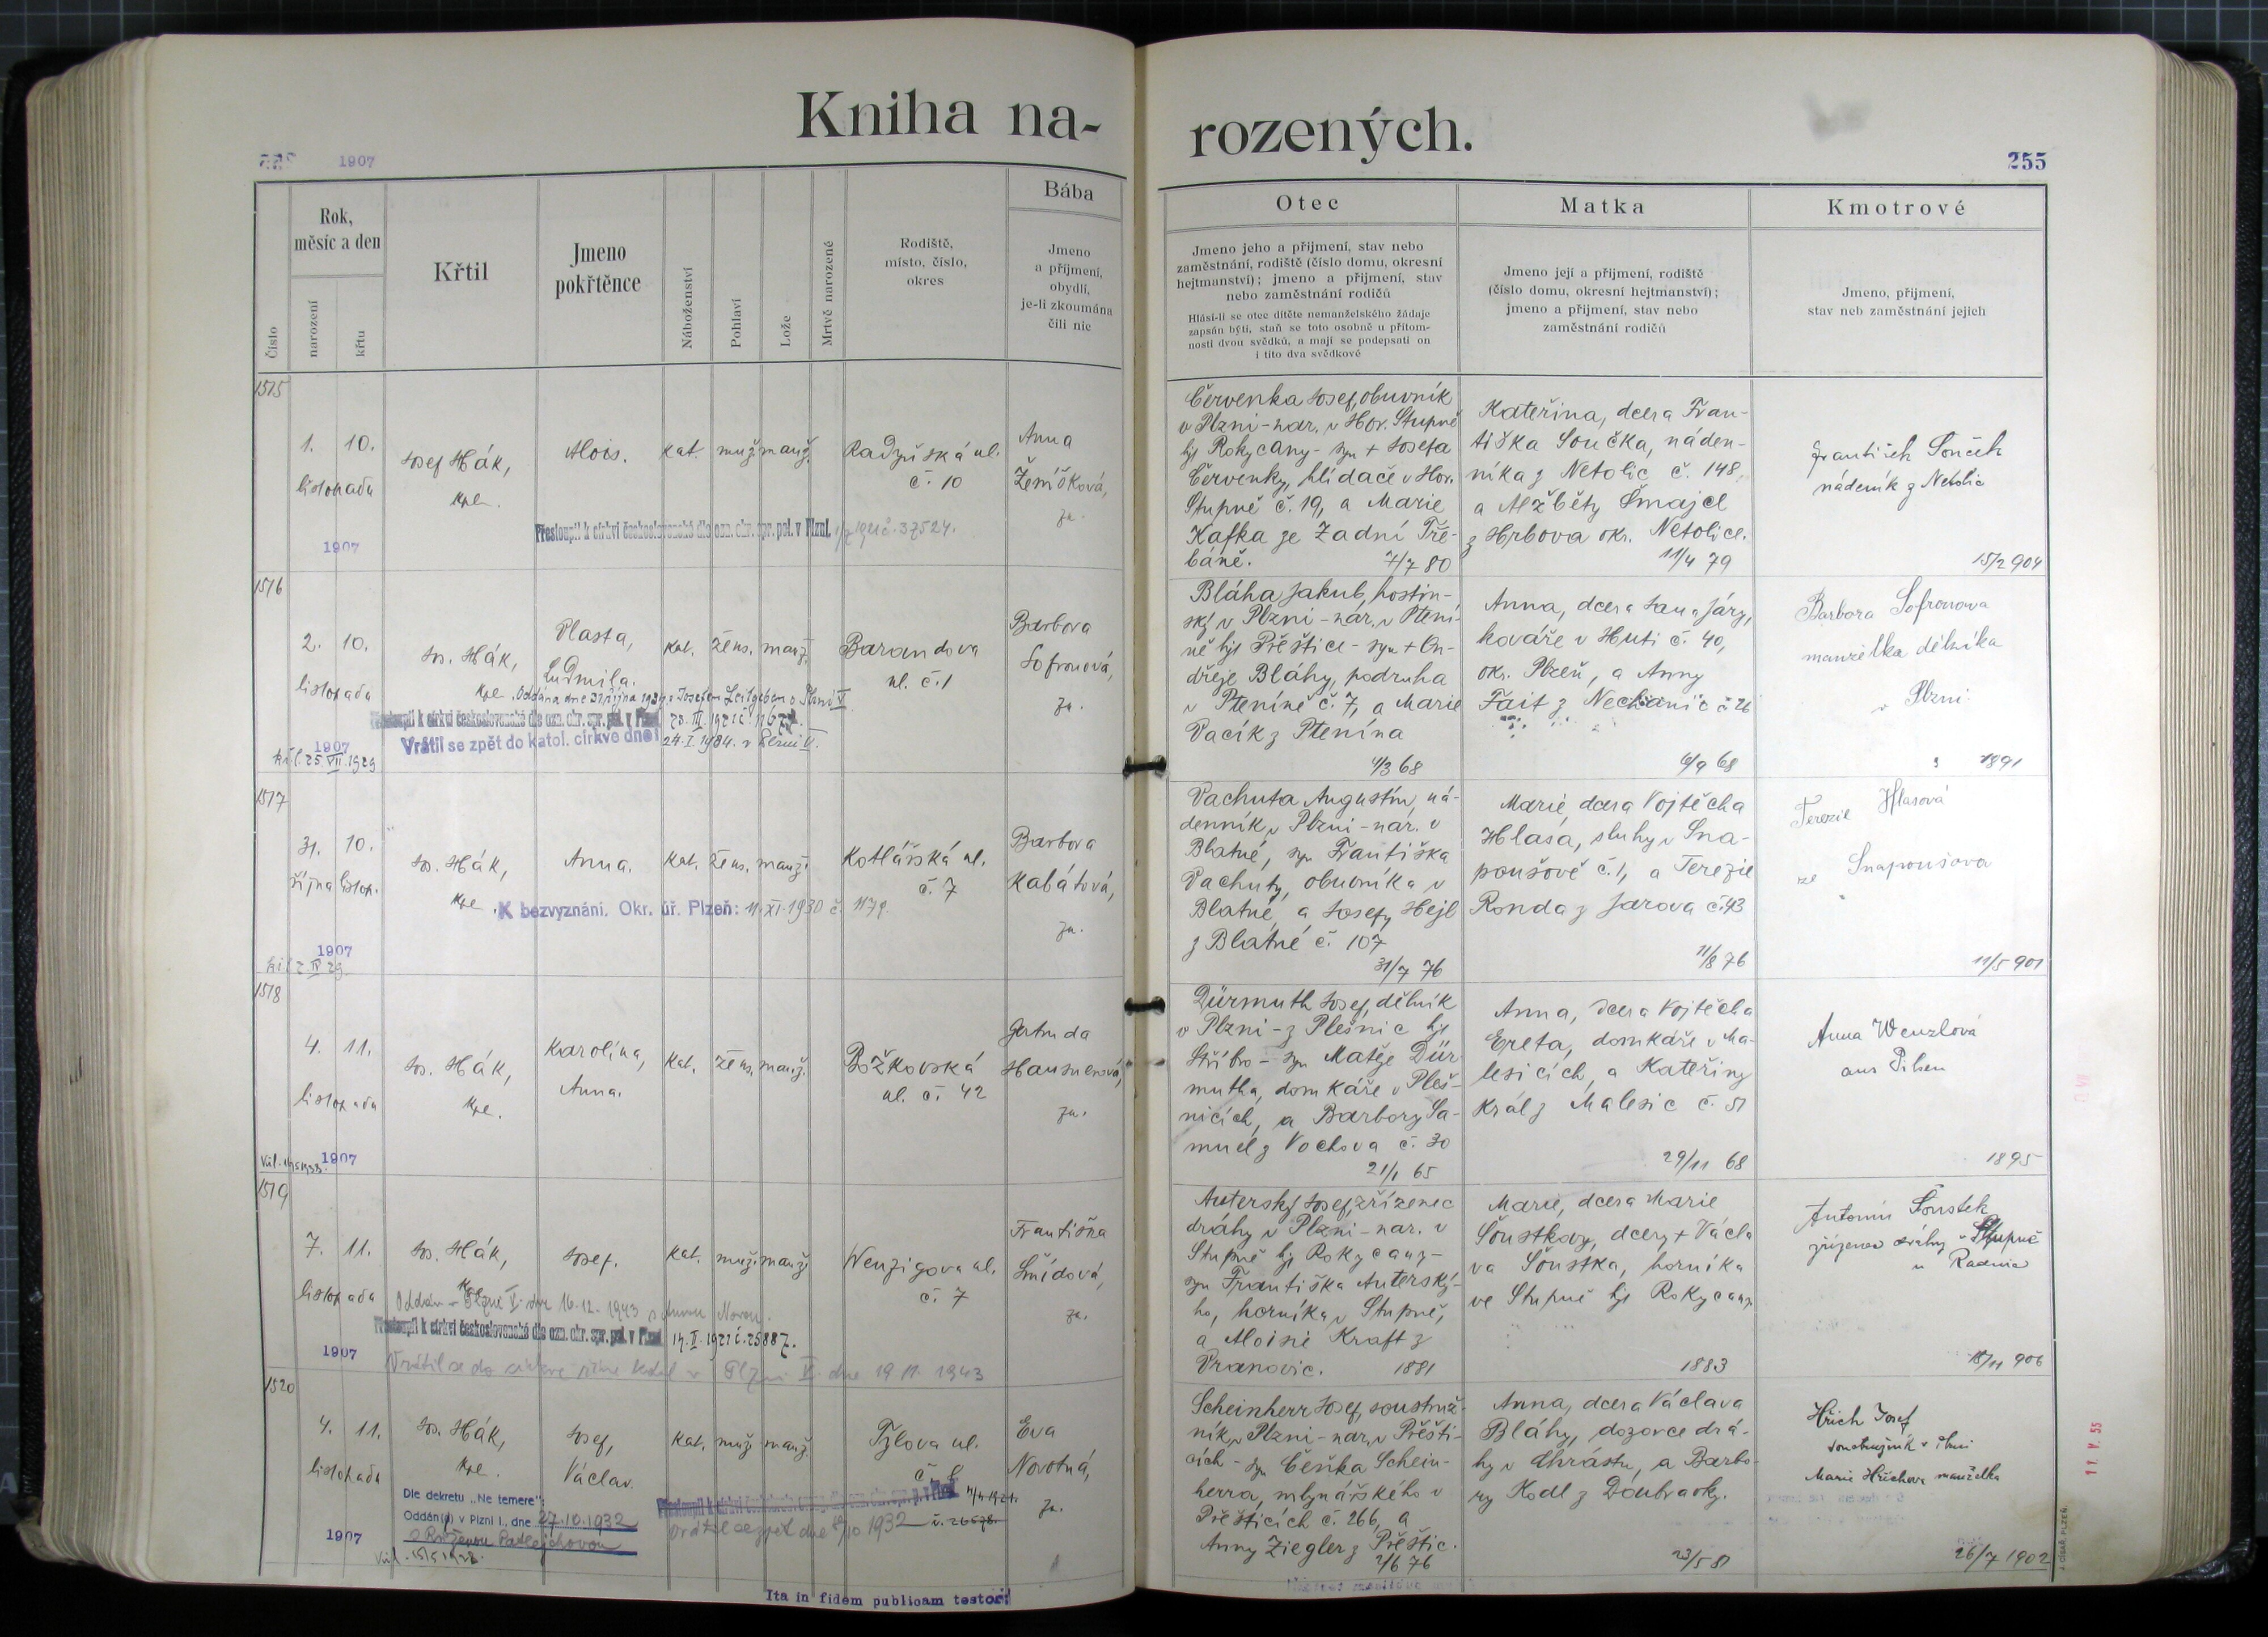 Kniha na-
rozených.
1907
255
Číslo
Rok,
měsíc a den
narození
křtu
Křtil
Jmeno
pokřtěnce
Náboženství
Pohlaví
Lože
Mrtvě narozené
Rodiště,
místo, číslo,
okres
Bába
Jmeno
a přijmení,
obydlí,
je-li zkoumána
čili nic
Otec
Jmeno jeho a přijmení, stav nebo
zaměstnání, rodiště (číslo domu, okresní
hejtmanství); jmeno a přijmení, stav
nebo zaměstnání rodičů
Hlásí-li se otec dítěte nemanželského žádaje
zapsán býti, staň se toto osobně u přítom-
nosti dvou svědků, a mají se podepsati on
i tito dva svědkové
Matka
Jmeno její a přijmení, rodiště
(číslo domu, okresní hejtmanství);
jmeno a přijmení, stav nebo
zaměstnání rodičů
Kmotrové
Jmeno, přijmení,
stav neb zaměstnání jejich
1515
1. 10.
listopadu
1907
Josef Hák,
kpl.
Alois.
kat. muž. manž.
Radyňská ul.
č. 10
Anna
Žemíšková,
zk.
Přestoupil k církvi československé dle ozn. okr. spr. pol. v Plzni. 1/7 1921 č. 37524.
Červenka Josef, obuvník
v Plzni - nar. v Hor. Stupně
hjt Rokycany - syn + Josefa
Červenky, hlídače v Hor.
Stupně č. 19, a Marie
Kafka ze Zadní Tře-
báně. 7/7 80
Kateřina, dcera Fran-
tiška Součka, náden-
níka z Netolic č. 148,
a Alžběty Šmajcl
z Hrbova okr. Netolice.
11/4 79
František Souček
nádeník z Netolic
15/2 904
1516
2. 10.
listopadu
1907
Jos. Hák,
kpl.
Vlasta,
Ludmila.
kat. žens. manž.
Barandova
ul. č. 1
Barbora
Sofronová,
zk.
Oddána dne 31. října 1934 s Josefem Leitgebem v Plzni V
Přestoupil k církvi československé dle ozn. okr. spr. pol. v Plzni
Vrátil se zpět do katol. církve dne: 24. I. 1934. v Plzni V.
Bláha Jakub, hostin-
ský v Plzni - nar. v Pteni-
ně hjt Přeštice - syn + On-
dřeje Bláhy, podruha
v Pteníně č. 7, a Marie
Vacík z Ptenína
4/3 68
Anna, dcera Jana Járy,
kováře v Huti č. 40,
okr. Plzeň, a Anny
Fait z Nechanic č 26
6/9 68
Barbora Sofronova
manželka dělníka
v Plzni
1891
1517
31. 10.
října listop.
1907
Jos. Hák,
kpl.
Anna.
kat. žens. manž.
Kotlářská ul.
č. 7
Barbora
Kabátová,
zk.
K bezvyznání, Okr. úř. Plzeň: 11. XI. 1930 č. 1179.
Vachuta Augustín, ná-
denník v Plzni - nar. v
Blatné, syn Františka
Vachuty, obuvníka v
Blatné, a Josefy Hejl
z Blatné č. 107
31/7 76
Marie, dcera Vojtěcha
Hlasá, sluhy v Sna-
poušově č. 1, a Terezie
Ronda z Jarova č. 43
11/8 76
Terezie Hlasová
ze Snapoušova
11/5 901
1518
4. 11.
listopadu
1907
Jos. Hák,
kpl.
Karolína,
Anna.
kat. žens. manž.
Božkovská
ul. č. 42
Gertruda
Hausnerová,
zk.
Dürmuth Josef, dělník
v Plzni - z Plešnic hjt
Stříbro - syn Matěje Dür
mutha, domkáře v Pleš-
nicích, a Barbory Sa-
muel z Vochova č. 30
21/1 65
Anna, dcera Vojtěcha
Ereta, domkáře v Ma-
lesicích, a Kateřiny
Král z Malesic č. 51
29/11 68
Anna Wenzlová
aus Pilsen
1895
1519
7. 11.
listopadu
1907
Jos. Hák,
kpl.
Josef.
kat. muž. manž.
Wenzigova ul.
č. 7
Františka
Šmídová,
zk.
Oddán v Plzni V. dne 16.12. 1943 s Annou Novou.
Přestoupil k církvi československé dle ozn. okr. spr. pol. v Plzni
Vrátil se do církve římsko katol v Plzni V. dne 19 11. 1943
Auterský Josef, zřízenec
dráhy v Plzni - nar. v
Stupně hjt Rokycany -
syn Františka Auterský-
ho, horníka v Stupně,
a Aloisie Kraft z
Vranovic. 1881
Marie, dcera Marie
Šoustkovy, dcery + Václa
va Šoustka, horníka
ve Stupně hjt Rokycany
1883
Antonín Šoustek
zřízenec dráhy v Stupně
u Radnic
18/11 906
1520
4. 11.
listopadu
1907
Jos. Hák,
kpl.
Josef,
Václav.
kat. muž. manž.
Tylova ul.
Eva
Novotná,
zk.
Dle dekretu „Ne temere":
Oddán(a) v Plzni I., dne 27.10.1932
s Růženou Padlejchovou
Scheinherr Josef, soustruž-
ník v Plzni - nar. v Přešti-
cích - syn Čeňka Schein-
herra, mlynářského v
Přešticích č. 266, a
Anny Ziegler z Přeštic.
2/6 76
Anna, dcera Václava
Bláhy, dozorce drá-
hy v Chrástu, a Barbo-
ry Kodl z Doubravky.
23/5 81
Hřích Josef
soustružník v Plzni
Marie Hříchova manželka
26/7 1902
Ita in fidem publicam testor:
11 V. 55